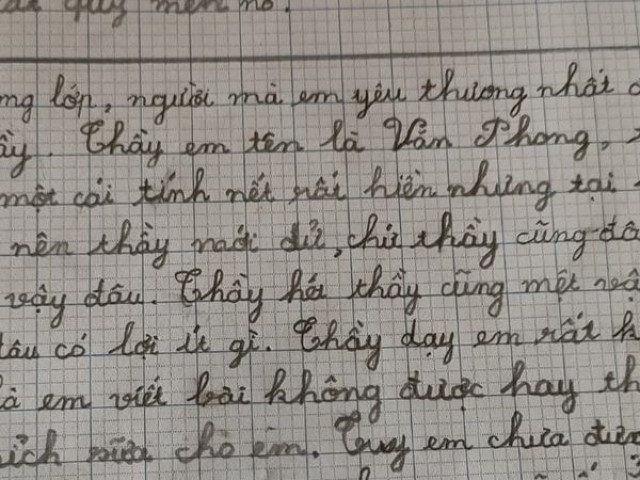 quý mến nó.
ng lớp, người mà em yêu thương nhất
ầy. Thầy em tên là Văn Phong,
một cái tính nết rất hiền nhưng tại
nên thầy mới dữ, chứ thầy cũng đâ
vậy đâu. Thầy hát thầy cũng mệt vậ
đâu có lợi ít gì. Thầy dạy em rất h
à em viết bài không được hay th
ích nữa cho em. Tuy em chưa đượ